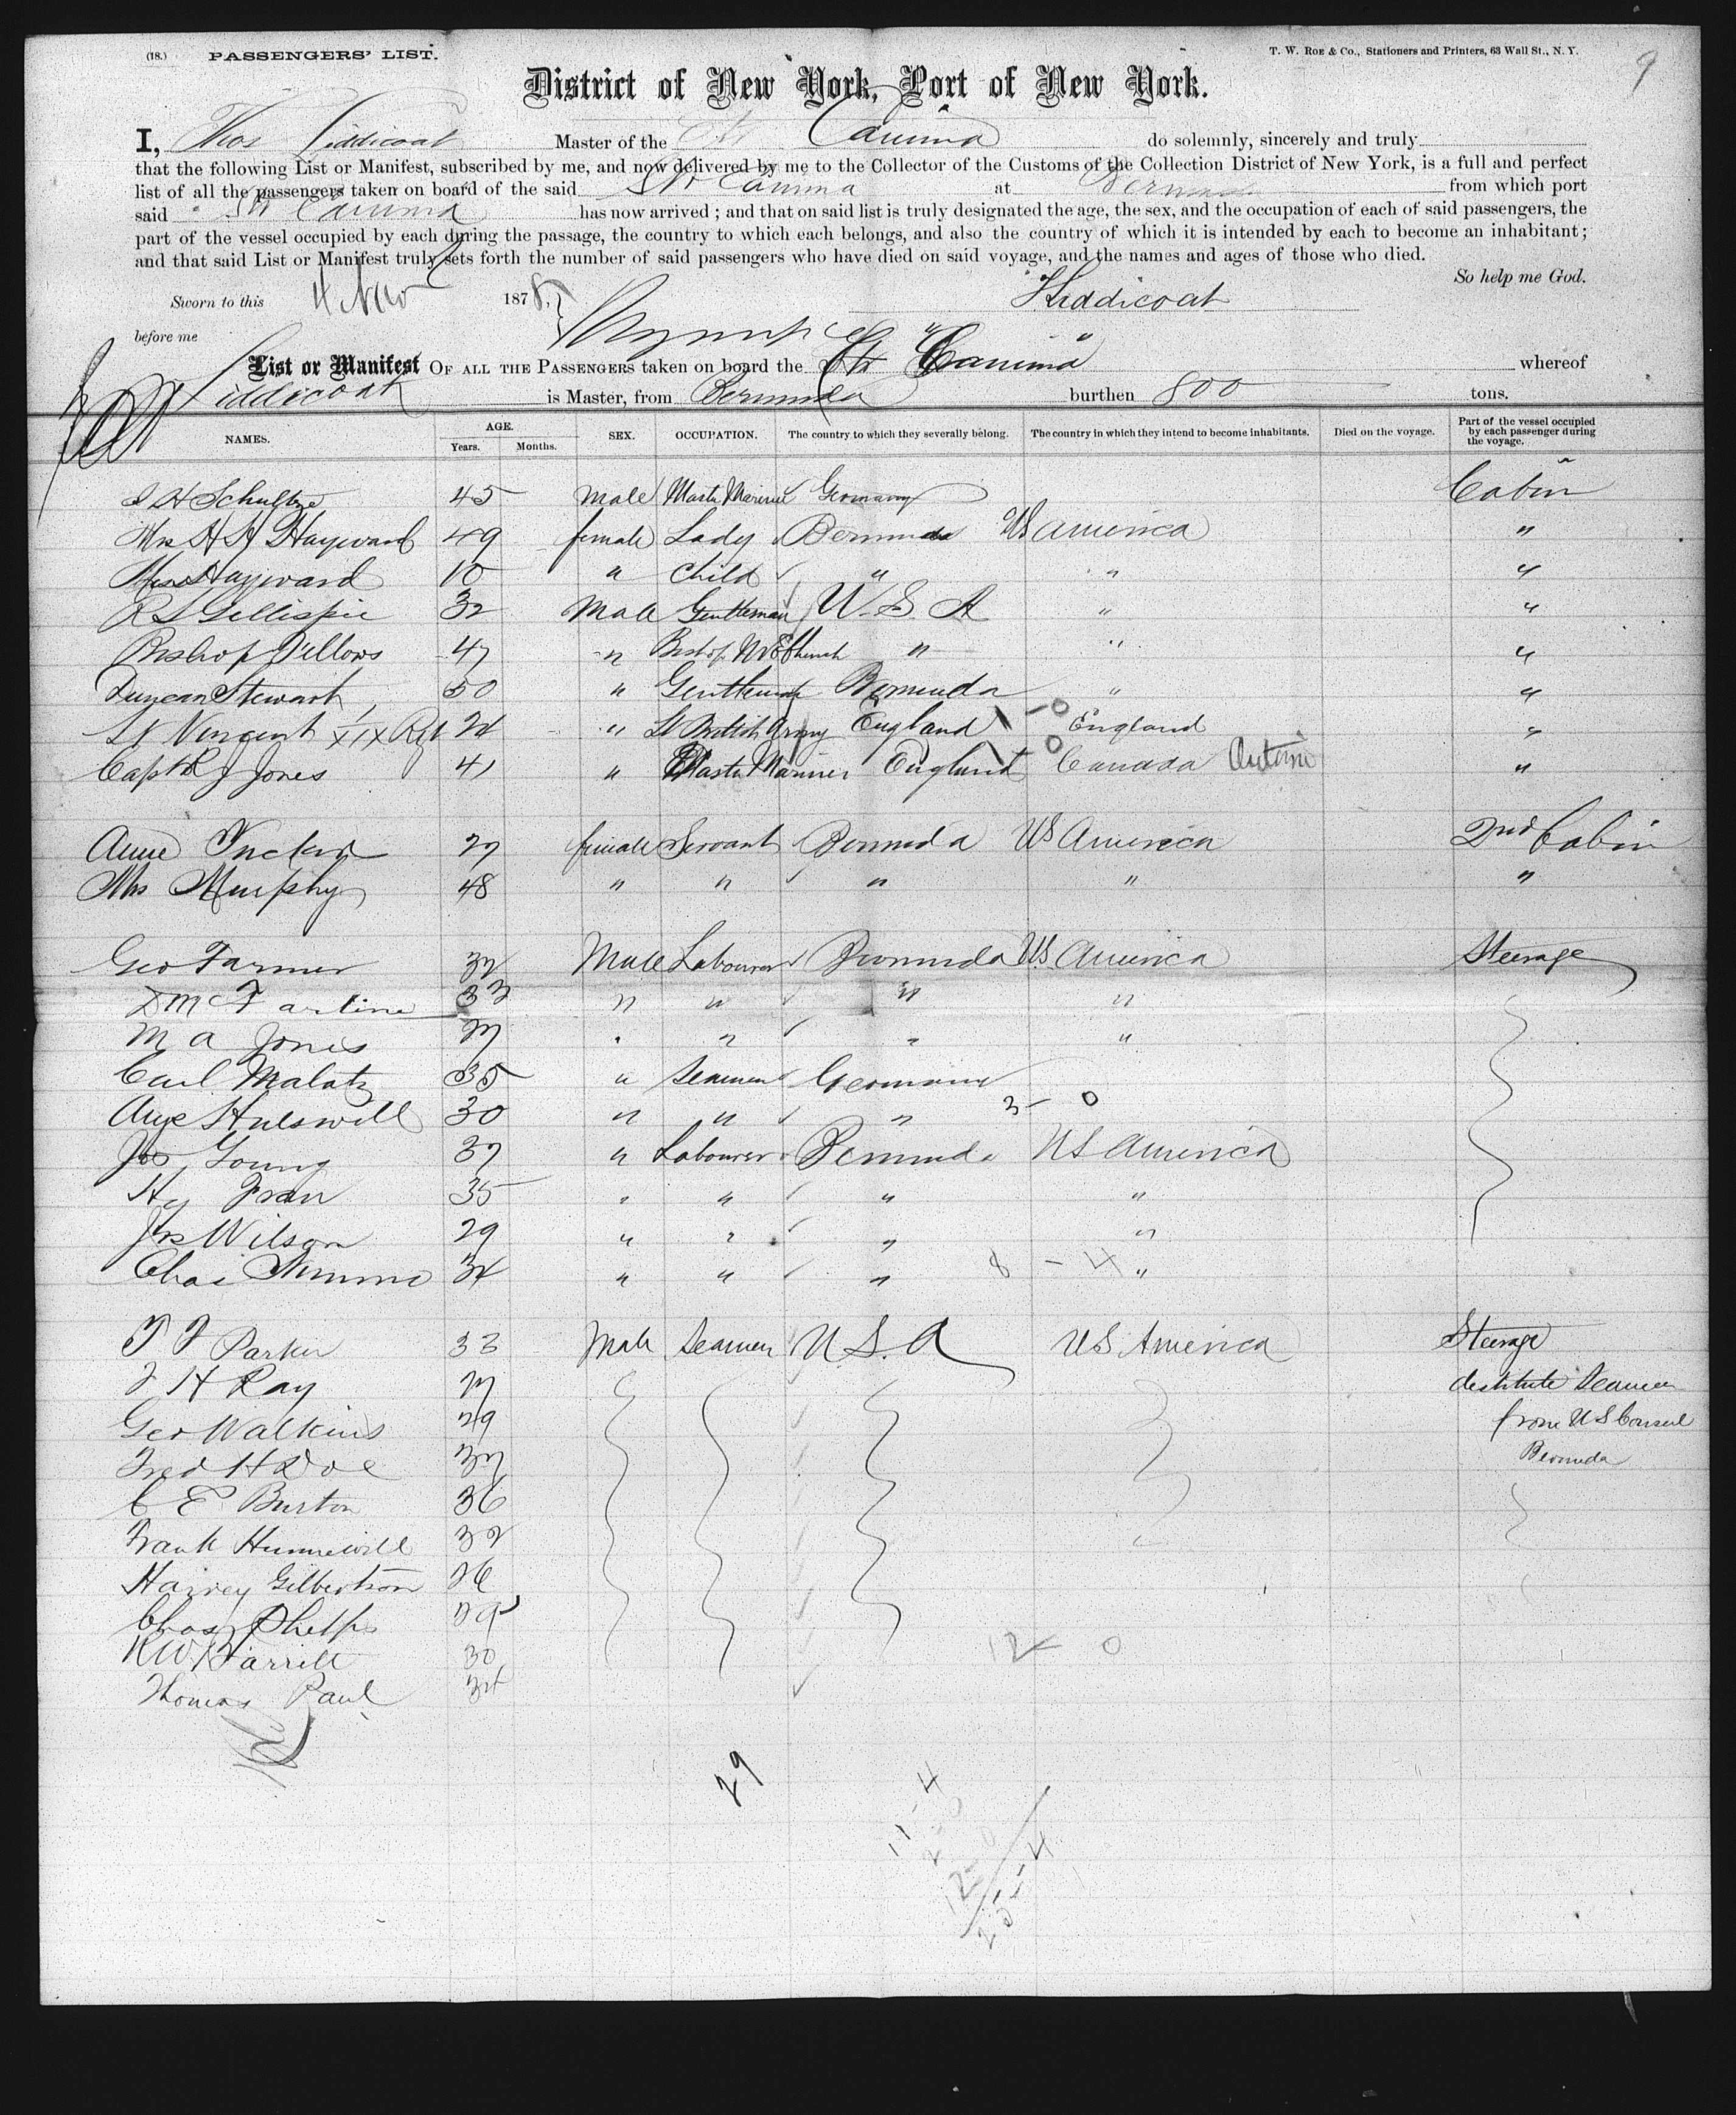 (18.) PASSENGERS' LIST. T. W. ROE & CO., Stationers and Printers, 63 Wall St., N. Y. 9
District of New York, Port of New York.
I, Thos Liddicoat Master of the Str Canima do solemnly, sincerely and truly
that the following List or Manifest, subscribed by me, and now delivered by me to the Collector of the Customs of the Collection District of New York, is a full and perfect
list of all the passengers taken on board of the said Str Canima at Bermuda from which port
said Str Canima has now arrived ; and that on said list is truly designated the age, the sex, and the occupation of each of said passengers, the
part of the vessel occupied by each during the passage, the country to which each belongs, and also the country of which it is intended by each to become an inhabitant ;
and that said List or Manifest truly sets forth the number of said passengers who have died on said voyage, and the names and ages of those who died.
So help me God.
Sworn to this 4 Nov 1878, Liddicoat
before me
List or Manifest OF ALL THE PASSENGERS taken on board the Str "Canima" whereof
Liddicoat is Master, from Bermuda burthen 800 tons.
NAMES. AGE. Years. Months. SEX. OCCUPATION. The country to which they severally belong. The country in which they intend to become inhabitants. Died on the voyage. Part of the vessel occupied by each passenger during the voyage.
H Schultze 45 Male Master Mariner Germany Cabin
Mrs Hayward 49 female Lady Bermuda US America "
Miss Hayward 10 " Child " " "
R S Gillispie 32 Male Gentleman U. S. A " "
Bishop Fellows 47 " Bishop Church " " "
Duncan Stewart 50 " Gentleman Bermuda " "
Lt Vincent XIX Rgt 24 " Lt British Army England 1 - 0 England "
Capt R J Jones 41 " Master Mariner England 1 0 Canada "
Anne Tucker 27 female Servant Bermuda US America 2nd Cabin
Mrs Murphy 48 " " " " "
Geo Farmer 32 Male Labourer Bermuda US America Steerage
33 " " " "
M A Jones 27 " " " "
Carl Malatz 35 " Seamen Germany
Aug Hulswill 30 " " " 3 - 0
Jos Young 37 " Labourer Bermuda US America
Hy 35 " " " "
Jas Wilson 29 " " " "
Chas Simmons 34 " " " 8 - 4 "
T F Parker 33 Male Seamen U. S. A US America Steerage
H Ray 27 destitute Seamen
Geo Watkins 29 from US Consul
Fred H Doe 37 Bermuda
C E Burton 36
Frank Hunnewill 32
Harvey Gilbertson 26
Chas Phelps 29
30 12 - 0
Thomas Paul 34
29
11 - 4
2 - 0
12 - 0
25 - 4